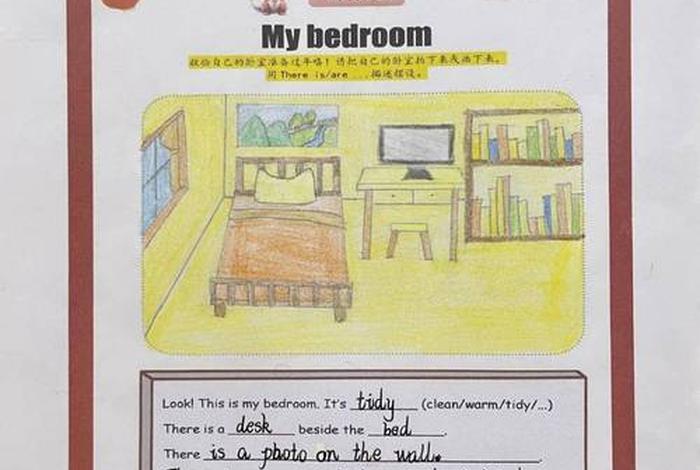 My bedroom
收拾自己的卧室准备过年咯！请把自己的卧室拍下来或画下来，
用 There is/are ... 描述摆设。
Look! This is my bedroom. It's tidy (clean/warm/tidy/...)
There is a desk beside the bed.
There is a photo on the wall.